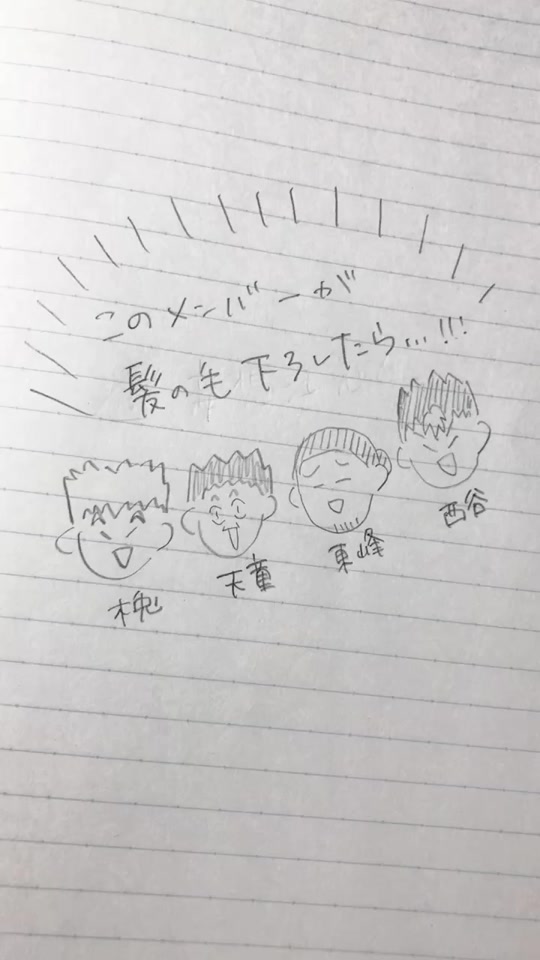 このメンバーが
髪の毛下ろしたら...!!!
木兎
天童
東峰
西谷